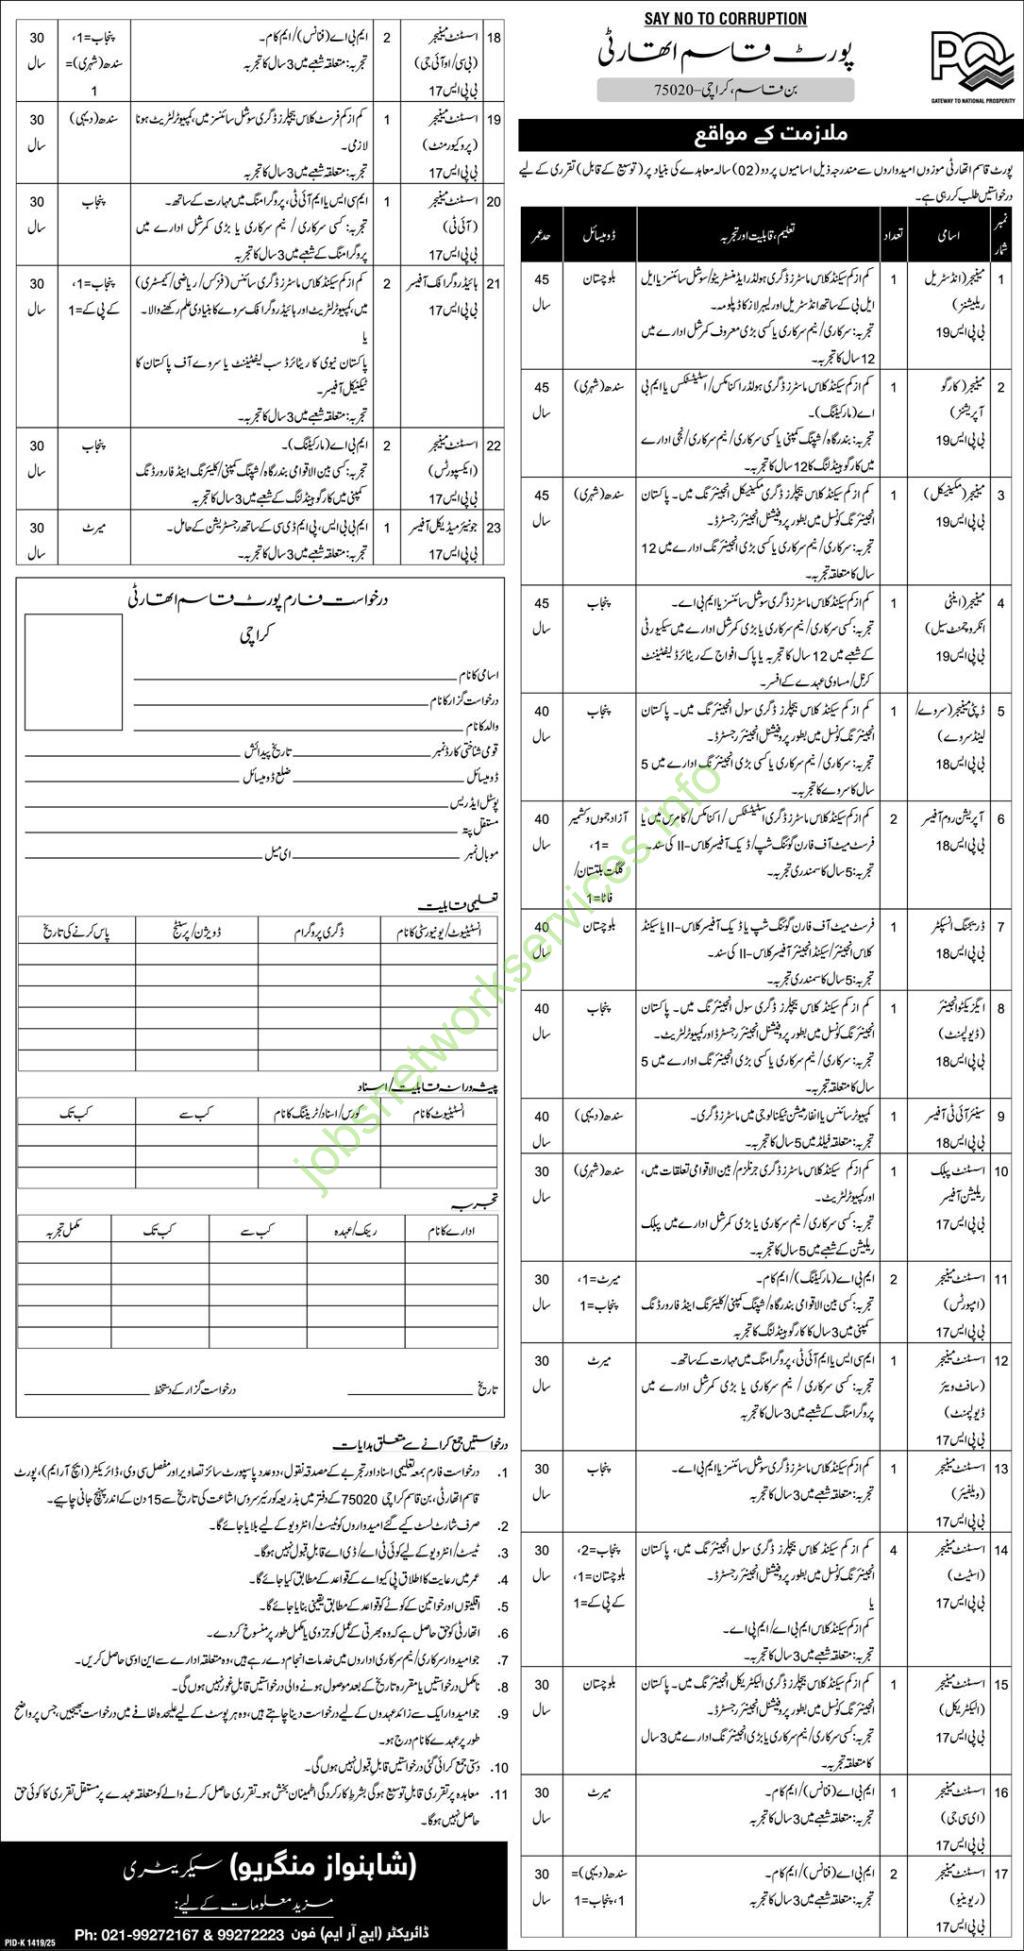 SAY NO TO CORRUPTION
پورٹ قاسم اتھارٹی
بن قاسم، کراچی-75020
PQA
GATEWAY TO NATIONAL PROSPERITY
ملازمت کے مواقع
پورٹ قاسم اتھارٹی موزوں امیدواروں سے مندرجہ ذیل اسامیوں پر دو (02) سالہ معاہدے کی بنیاد پر (توسیع کے قابل) تقرری کے لیے
درخواستیں طلب کر رہی ہے۔
نمبر شمار | اسامی | تعداد | تعلیم، قابلیت اور تجربہ | ڈومیسائل | حد عمر
1 | مینیجر (انڈسٹریل ریلیشنز) بی پی ایس 19 | 1 | کم از کم سیکنڈ کلاس ماسٹرز ڈگری ہولڈر ایڈمنسٹریٹو/سوشل سائنسز یا ایل ایل بی کے ساتھ انڈسٹریل اور لیبر لاز کا ڈپلومہ۔ تجربہ: سرکاری/نیم سرکاری یا کسی بڑی معروف کمرشل ادارے میں 12 سال کا تجربہ۔ | بلوچستان | 45 سال
2 | مینیجر (کارگو آپریشنز) بی پی ایس 19 | 1 | کم از کم سیکنڈ کلاس ماسٹرز ڈگری ہولڈر اکنامکس/اسٹیٹسٹکس یا ایم بی اے (مارکیٹنگ)۔ تجربہ: بندرگاہ/شپنگ کمپنی یا کسی سرکاری/نیم سرکاری/نجی ادارے میں کارگو ہینڈلنگ کا 12 سال کا تجربہ۔ | سندھ (شہری) | 45 سال
3 | مینیجر (مکینیکل) بی پی ایس 19 | 1 | کم از کم سیکنڈ کلاس بیچلرز ڈگری مکینیکل انجینئرنگ میں۔ پاکستان انجینئرنگ کونسل میں بطور پروفیشنل انجینئر رجسٹرڈ۔ تجربہ: سرکاری/نیم سرکاری یا کسی بڑی انجینئرنگ ادارے میں 12 سال کا متعلقہ تجربہ۔ | سندھ (شہری) | 45 سال
4 | مینیجر (اینٹی انکروچمنٹ سیل) بی پی ایس 19 | 1 | کم از کم سیکنڈ کلاس ماسٹرز ڈگری سوشل سائنسز یا ایم بی اے۔ تجربہ: کسی سرکاری/نیم سرکاری یا بڑی کمرشل ادارے میں سیکیورٹی کے شعبے میں 12 سال کا تجربہ یا پاک افواج کے ریٹائرڈ لیفٹیننٹ کرنل/مساوی عہدے کے افسر۔ | پنجاب | 45 سال
5 | ڈپٹی مینیجر (سروے/لینڈ سروے) بی پی ایس 18 | 1 | کم از کم سیکنڈ کلاس بیچلرز ڈگری سول انجینئرنگ میں۔ پاکستان انجینئرنگ کونسل میں بطور پروفیشنل انجینئر رجسٹرڈ۔ تجربہ: سرکاری/نیم سرکاری یا کسی بڑی انجینئرنگ ادارے میں 5 سال کا سروے کا تجربہ۔ | پنجاب | 40 سال
6 | آپریشن روم آفیسر بی پی ایس 18 | 2 | کم از کم سیکنڈ کلاس ماسٹرز ڈگری اسٹیٹسٹکس/اکنامکس/کامرس میں یا فرسٹ میٹ آف فارن گوئنگ شپ/ڈیک آفیسر کلاس-II کی سند۔ تجربہ: 5 سال کا سمندری تجربہ۔ | آزاد جموں و کشمیر =1، گلگت بلتستان/فاٹا=1 | 40 سال
7 | ڈریجنگ انسپکٹر بی پی ایس 18 | 1 | فرسٹ میٹ آف فارن گوئنگ شپ یا ڈیک آفیسر کلاس-II یا سیکنڈ کلاس انجینئر/سیکنڈ انجینئر آفیسر کلاس-II کی سند۔ تجربہ: 5 سال کا سمندری تجربہ۔ | بلوچستان | 40 سال
8 | ایگزیکٹو انجینئر (ڈیولپمنٹ) بی پی ایس 18 | 1 | کم از کم سیکنڈ کلاس بیچلرز ڈگری سول انجینئرنگ میں۔ پاکستان انجینئرنگ کونسل میں بطور پروفیشنل انجینئر رجسٹرڈ اور کمپیوٹر لٹریٹ۔ تجربہ: سرکاری/نیم سرکاری یا کسی بڑی انجینئرنگ ادارے میں 5 سال کا متعلقہ تجربہ۔ | پنجاب | 40 سال
9 | سینئر آئی ٹی آفیسر بی پی ایس 18 | 1 | کمپیوٹر سائنس یا انفارمیشن ٹیکنالوجی میں ماسٹرز ڈگری۔ تجربہ: متعلقہ فیلڈ میں 5 سال کا تجربہ۔ | سندھ (دیہی) | 40 سال
10 | اسسٹنٹ پبلک ریلیشن آفیسر بی پی ایس 17 | 1 | کم از کم سیکنڈ کلاس ماسٹرز ڈگری جرنلزم/بین الاقوامی تعلقات میں، اور کمپیوٹر لٹریٹ۔ تجربہ: کسی سرکاری/نیم سرکاری یا بڑی کمرشل ادارے میں پبلک ریلیشن کے شعبے میں 5 سال کا تجربہ۔ | سندھ (شہری) | 30 سال
11 | اسسٹنٹ مینیجر (امپورٹس) بی پی ایس 17 | 2 | ایم بی اے (مارکیٹنگ)/ایم کام۔ تجربہ: کسی بین الاقوامی بندرگاہ/شپنگ کمپنی/کلیئرنگ اینڈ فارورڈنگ کمپنی میں 3 سال کا کارگو ہینڈلنگ کا تجربہ | میرٹ=1، پنجاب=1 | 30 سال
12 | اسسٹنٹ مینیجر (سافٹ ویئر ڈیولپمنٹ) بی پی ایس 17 | 1 | ایم سی ایس یا ایم آئی ٹی، پروگرامنگ میں مہارت کے ساتھ۔ تجربہ: کسی سرکاری/نیم سرکاری یا بڑی کمرشل ادارے میں پروگرامنگ کے شعبے میں 3 سال کا تجربہ | میرٹ | 30 سال
13 | اسسٹنٹ مینیجر (ویلفیئر) بی پی ایس 17 | 1 | کم از کم سیکنڈ کلاس ماسٹرز ڈگری سوشل سائنسز یا ایم بی اے۔ تجربہ: متعلقہ شعبے میں 3 سال کا تجربہ | پنجاب | 30 سال
14 | اسسٹنٹ مینیجر (اسٹیٹ) بی پی ایس 17 | 4 | کم از کم سیکنڈ کلاس بیچلرز ڈگری سول انجینئرنگ میں، پاکستان انجینئرنگ کونسل میں بطور پروفیشنل انجینئر رجسٹرڈ۔ یا کم از کم سیکنڈ کلاس ایم بی اے/ایم پی اے۔ تجربہ: متعلقہ شعبے میں 3 سال کا تجربہ | پنجاب=2، بلوچستان=1، کے پی کے=1 | 30 سال
15 | اسسٹنٹ مینیجر (الیکٹریکل) بی پی ایس 17 | 1 | کم از کم سیکنڈ کلاس بیچلرز ڈگری الیکٹریکل انجینئرنگ میں۔ پاکستان انجینئرنگ کونسل میں بطور پروفیشنل انجینئر رجسٹرڈ۔ تجربہ: کسی سرکاری/نیم سرکاری یا بڑی انجینئرنگ ادارے میں 3 سال کا متعلقہ تجربہ۔ | بلوچستان | 30 سال
16 | اسسٹنٹ مینیجر (ای سی جی) بی پی ایس 17 | 1 | ایم بی اے (فنانس)/ایم کام۔ تجربہ: متعلقہ شعبے میں 3 سال کا تجربہ | میرٹ | 30 سال
17 | اسسٹنٹ مینیجر (ریونیو) بی پی ایس 17 | 2 | ایم بی اے (فنانس)/ایم کام۔ تجربہ: متعلقہ شعبے میں 3 سال کا تجربہ | سندھ (دیہی)=1، پنجاب=1 | 30 سال
18 | اسسٹنٹ مینیجر (بی سی/او آئی جی) بی پی ایس 17 | 2 | ایم بی اے (فنانس)/ایم کام۔ تجربہ: متعلقہ شعبے میں 3 سال کا تجربہ | پنجاب=1، سندھ (شہری)=1 | 30 سال
19 | اسسٹنٹ مینیجر (پروکیورمنٹ) بی پی ایس 17 | 1 | کم از کم فرسٹ کلاس بیچلرز ڈگری سوشل سائنسز میں، کمپیوٹر لٹریٹ ہونا لازمی۔ تجربہ: متعلقہ شعبے میں 3 سال کا تجربہ | سندھ (دیہی) | 30 سال
20 | اسسٹنٹ مینیجر (آئی ٹی) بی پی ایس 17 | 1 | ایم سی ایس یا ایم آئی ٹی، پروگرامنگ میں مہارت کے ساتھ۔ تجربہ: کسی سرکاری/نیم سرکاری یا بڑی کمرشل ادارے میں پروگرامنگ کے شعبے میں 3 سال کا تجربہ | پنجاب | 30 سال
21 | ہائیڈروگرافک آفیسر بی پی ایس 17 | 2 | کم از کم سیکنڈ کلاس ماسٹرز ڈگری سائنس (فزکس/ریاضی/کیمسٹری) میں، کمپیوٹر لٹریٹ اور ہائیڈروگرافک سروے کا بنیادی علم رکھنے والا۔ یا پاکستان نیوی کا ریٹائرڈ سب لیفٹیننٹ یا سروے آف پاکستان کا ٹیکنیکل آفیسر۔ تجربہ: متعلقہ شعبے میں 3 سال کا تجربہ۔ | پنجاب=1، کے پی کے=1 | 30 سال
22 | اسسٹنٹ مینیجر (ایکسپورٹس) بی پی ایس 17 | 2 | ایم بی اے (مارکیٹنگ)۔ تجربہ: کسی بین الاقوامی بندرگاہ/شپنگ کمپنی/کلیئرنگ اینڈ فارورڈنگ کمپنی میں کارگو ہینڈلنگ کے شعبے میں 3 سال کا تجربہ | پنجاب | 30 سال
23 | جونیئر میڈیکل آفیسر بی پی ایس 17 | 1 | ایم بی بی ایس، پی ایم ڈی سی کے ساتھ رجسٹریشن کے حامل۔ تجربہ: متعلقہ شعبے میں 3 سال کا تجربہ۔ | میرٹ | 30 سال
درخواست فارم پورٹ قاسم اتھارٹی
کراچی
اسامی کا نام
درخواست گزار کا نام
والد کا نام
قومی شناختی کارڈ نمبر تاریخ پیدائش
ڈومیسائل ضلع ڈومیسائل
پوسٹل ایڈریس
مستقل پتہ
موبائل نمبر ای میل
تعلیمی قابلیت
انسٹیٹیوٹ/یونیورسٹی کا نام | ڈگری پروگرام | ڈویژن/پرسنٹیج | پاس کرنے کی تاریخ
پیشہ ورانہ قابلیت/اسناد
انسٹیٹیوٹ کا نام | کورس/اسناد/ٹریننگ کا نام | کب سے | کب تک
تجربہ
ادارے کا نام | رینک/عہدہ | کب سے | کب تک | مکمل تجربہ
تاریخ درخواست گزار کے دستخط
درخواستیں جمع کرانے سے متعلق ہدایات
1. درخواست فارم بمعہ تعلیمی اسناد اور تجربے کے مصدقہ نقول، دو عدد پاسپورٹ سائز تصاویر اور مفصل سی وی، ڈائریکٹر (ایچ آر ایم)، پورٹ
قاسم اتھارٹی، بن قاسم کراچی 75020 کے دفتر میں بذریعہ کوریئر سروس اشاعت کی تاریخ سے 15 دن کے اندر پہنچ جانی چاہیے۔
2. صرف شارٹ لسٹ کیے گئے امیدواروں کو ٹیسٹ/انٹرویو کے لیے بلایا جائے گا۔
3. ٹیسٹ/انٹرویو کے لیے کوئی ٹی اے/ڈی اے قابل قبول نہیں ہوگا۔
4. عمر میں رعایت کا اطلاق پی کیو اے کے قواعد کے مطابق کیا جائے گا۔
5. اقلیتوں اور خواتین کے کوٹے کو قواعد کے مطابق یقینی بنایا جائے گا۔
6. اتھارٹی کو حق حاصل ہے کہ وہ بھرتی کے عمل کو جزوی یا مکمل طور پر منسوخ کر دے۔
7. جو امیدوار سرکاری/نیم سرکاری اداروں میں خدمات انجام دے رہے ہیں، وہ متعلقہ ادارے سے این او سی حاصل کریں۔
8. نامکمل درخواستیں یا مقررہ تاریخ کے بعد موصول ہونے والی درخواستیں قابل غور نہیں ہوں گی۔
9. جو امیدوار ایک سے زائد عہدوں کے لیے درخواست دینا چاہتے ہیں، وہ ہر پوسٹ کے لیے علیحدہ لفافے میں درخواست بھیجیں، جس پر واضح
طور پر عہدے کا نام درج ہو۔
10. دستی جمع کرائی گئی درخواستیں قابل قبول نہیں ہوں گی۔
11. معاہدہ پر تقرری قابل توسیع ہوگی بشرط کارکردگی اطمینان بخش ہو۔ تقرری حاصل کرنے والے کو متعلقہ عہدے پر مستقل تقرری کا کوئی حق
حاصل نہیں ہوگا۔
(شاہنواز منگریو) سیکریٹری
مزید معلومات کے لیے:
ڈائریکٹر (ایچ آر ایم) فون Ph: 021-99272167 & 99272223
PID-K 1419/25
jobsnetworkservices.info